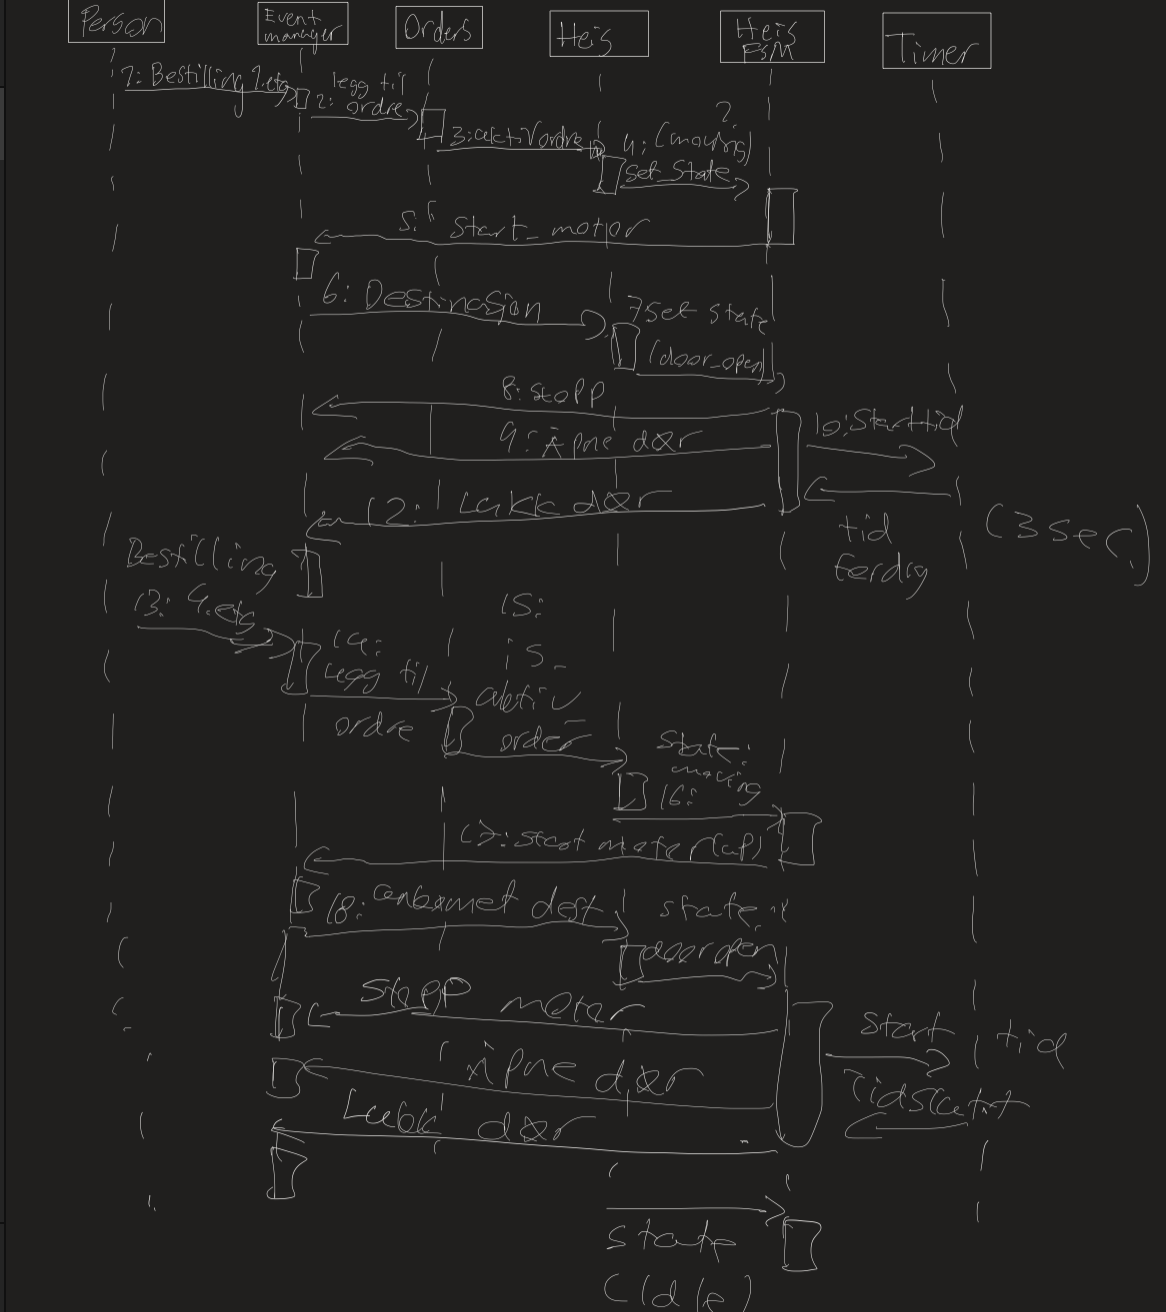 Person
Event
manager
Orders
Heis
Heis
FSM
Timer
1: Bestilling 1.etg
2: legg til
ordre
3: aktiv ordre
?
4: (moving)
set_state
5: start_motor
6: Destinasjon
7 set state
(door_open)
8: stopp
9: Åpne dør
10: Start tid
tid
ferdig
(3 sec)
12: Lukk dør
Bestilling
13: 4.etg
14:
legg til
ordre
15:
is_
aktiv
order
state:
moving
16:
17: start motor(up)
18: ankommet dest.
state:
door open
stopp motor
Åpne dør
Start tid
Tidslutt
Lukk dør
state
(Idle)